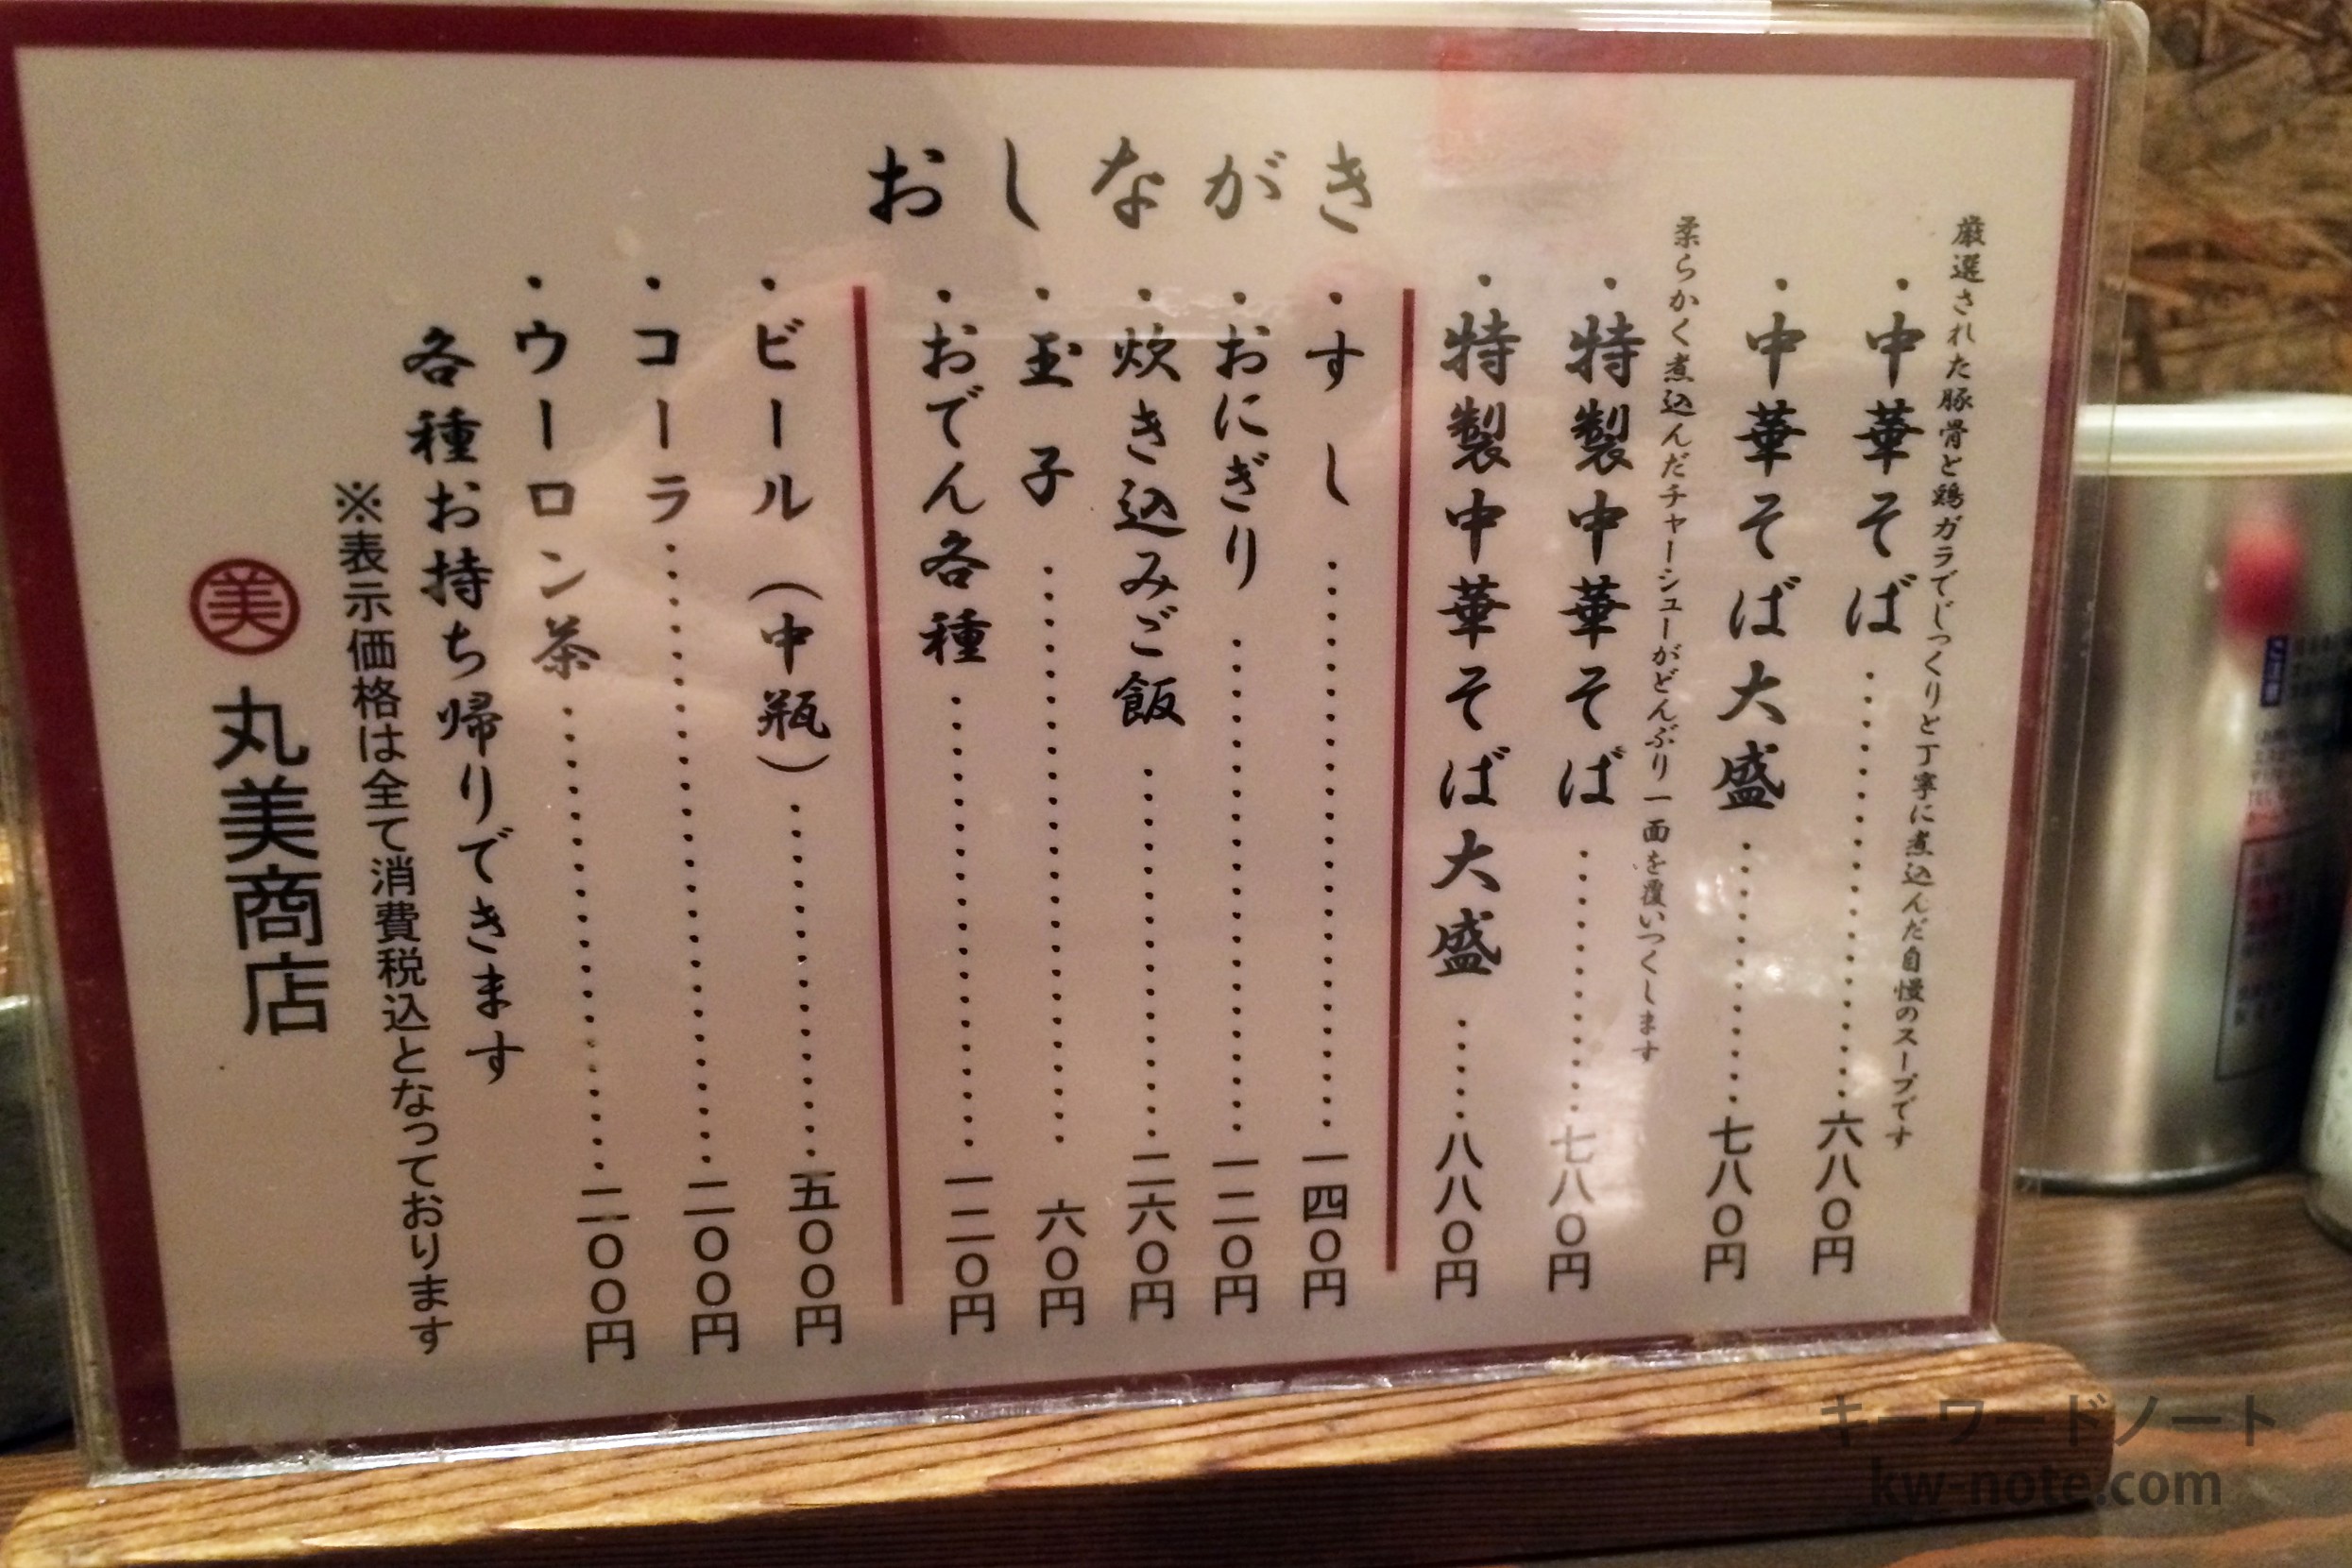 おしながき
厳選された豚骨と鶏ガラでじっくりと丁寧に煮込んだ自慢のスープです
・中華そば…………六八〇円
・中華そば大盛…………七八〇円
柔らかく煮込んだチャーシューがどんぶり一面を覆いつくします
・特製中華そば…………七八〇円
・特製中華そば大盛……八八〇円
・すし…………一四〇円
・おにぎり…………一二〇円
・炊き込みご飯…………二六〇円
・玉子…………六〇円
・おでん各種…………一二〇円
・ビール(中瓶)…………五〇〇円
・コーラ…………二〇〇円
・ウーロン茶…………二〇〇円
各種お持ち帰りできます
※表示価格は全て消費税込となっております
美 丸美商店
キーワードノート
kw-note.com